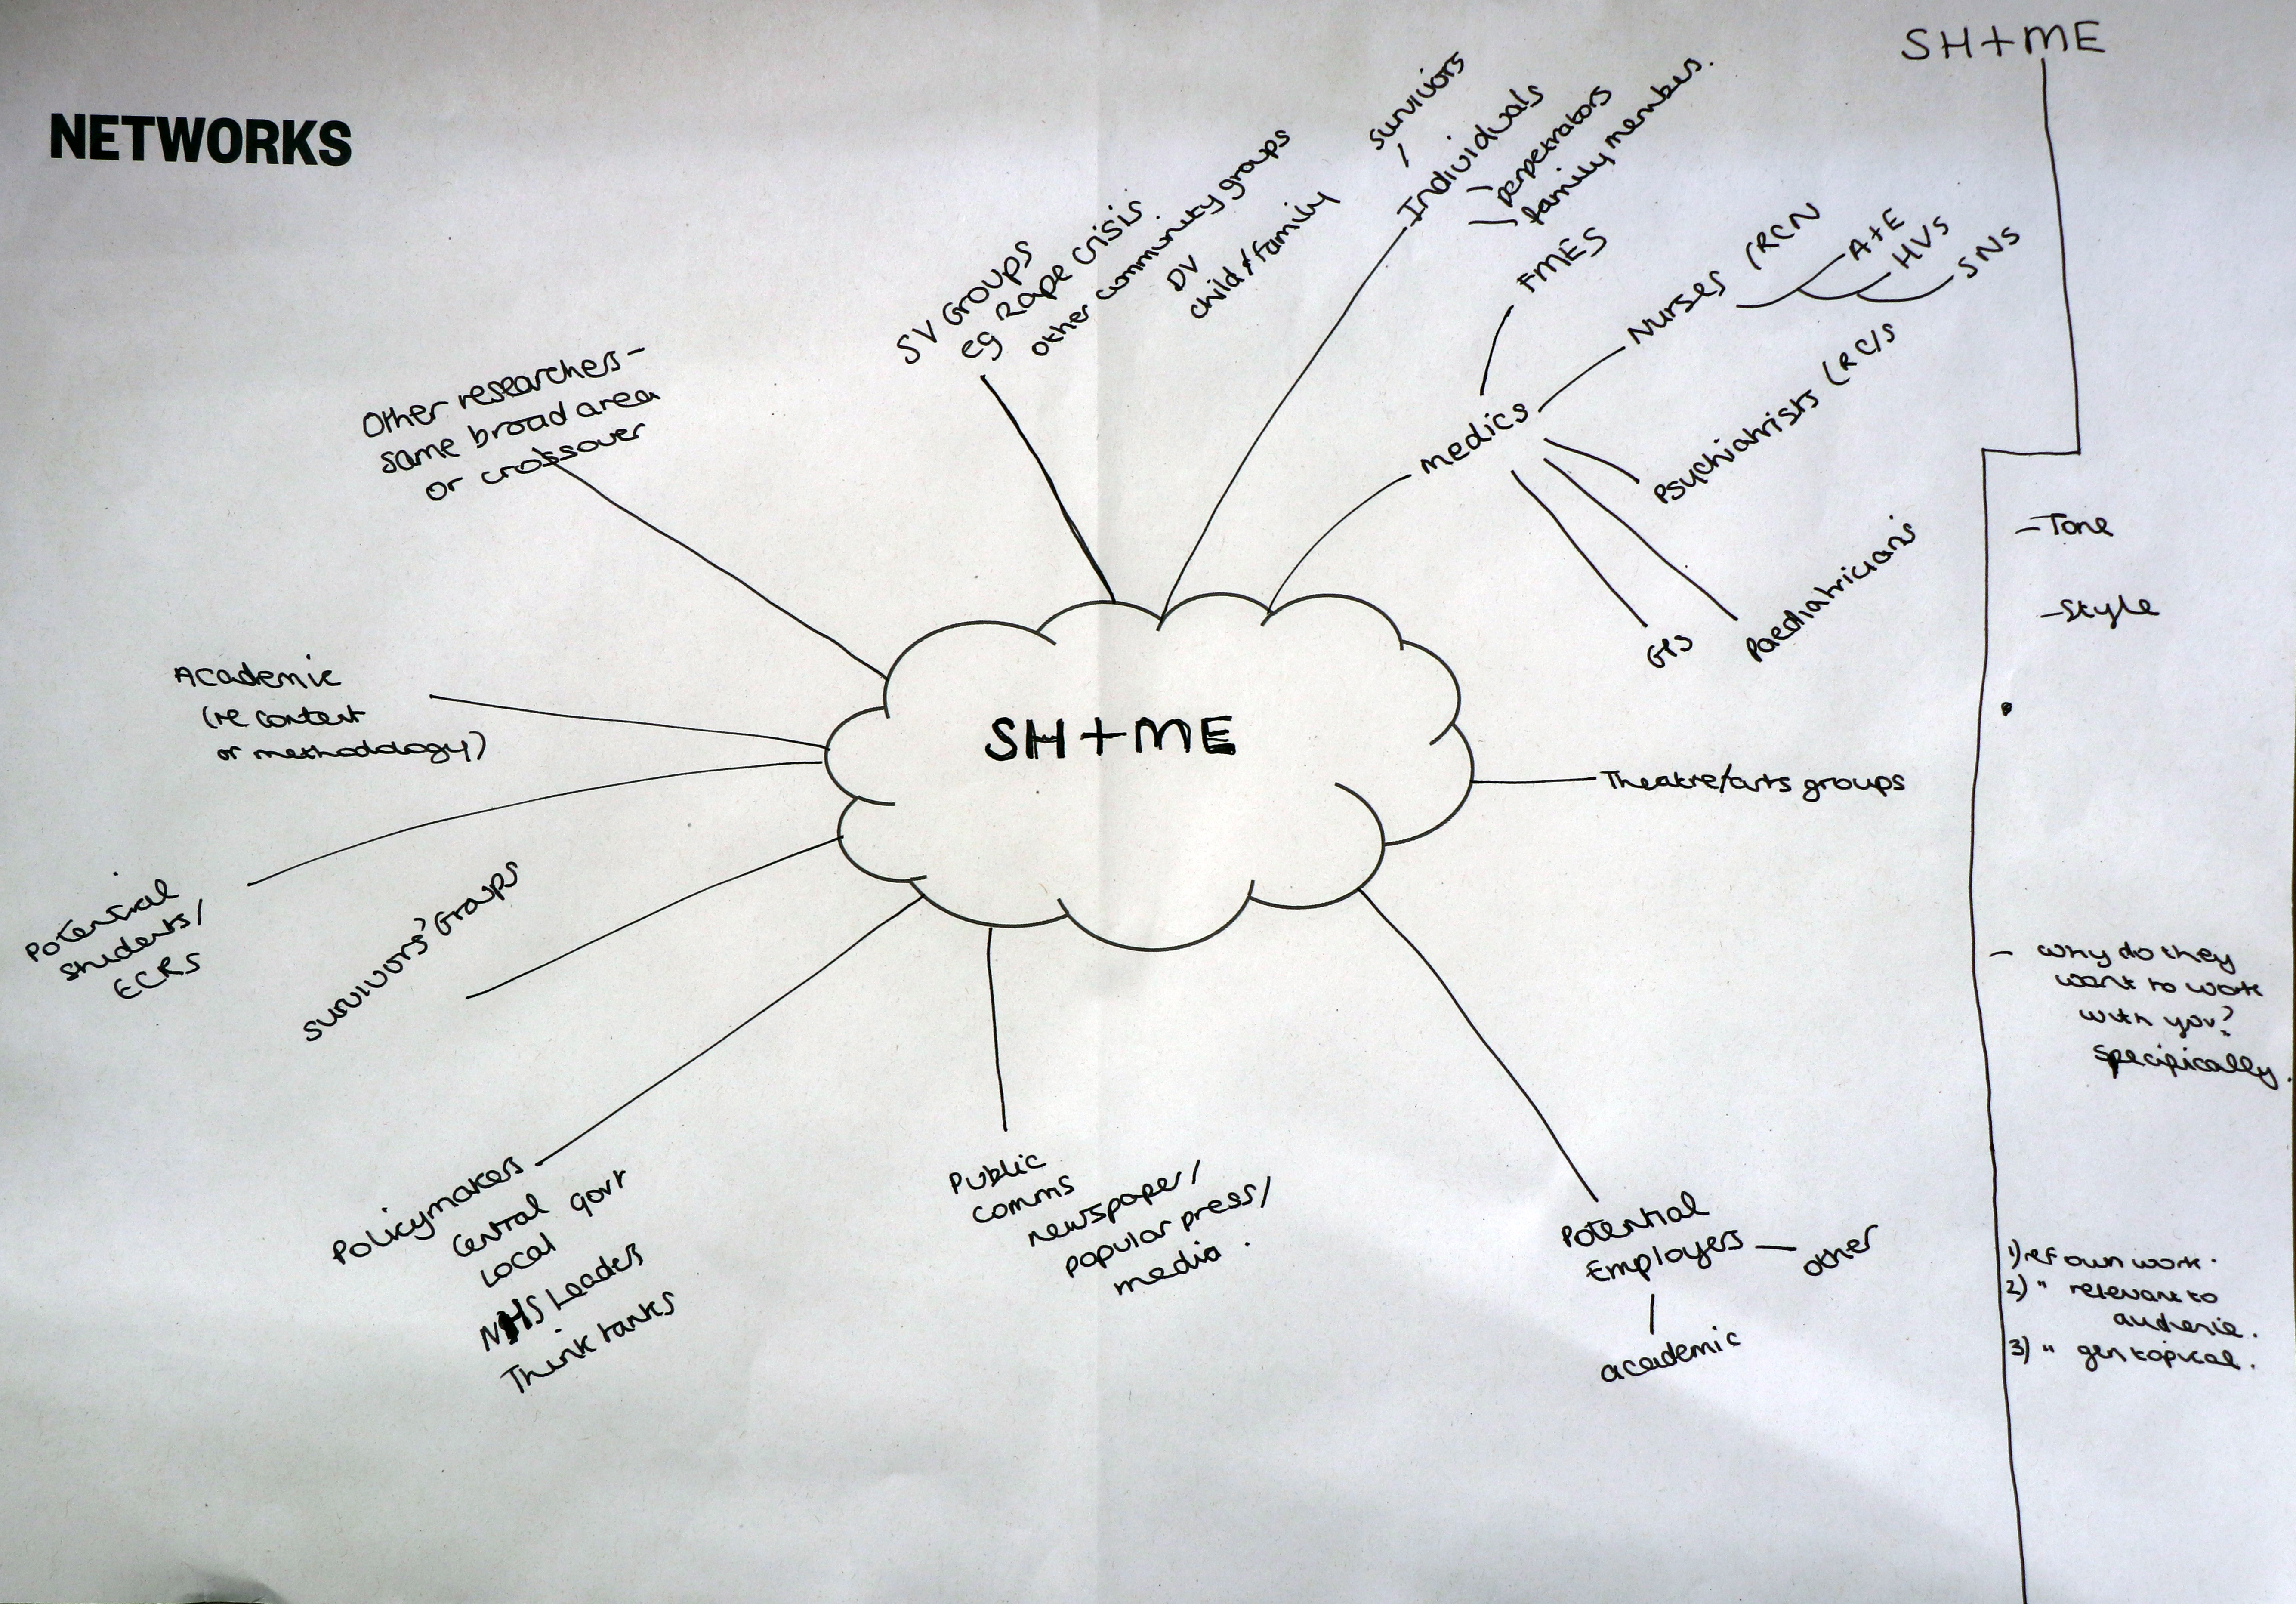 SH+ME
NETWORKS
Other researchers –
same broad area
or crossover
SV Groups
eg Rape Crisis
other community groups
DV
child/family
survivors
Individuals
perpetrators
family members.
FMES
Nurses (RCN
A+E
HVs
SNs
medics
Psychiatrists
Paediatricians
GPS
Theatre/arts groups
SH+ME
Academic
(re content
or methodology)
Potential
students/
ECRS
Survivors' Groups
Policymakers
Central govt
Local
NHS Leaders
Think tanks
Public
comms
newspaper/
popular press/
media.
Potential
Employers – other
academic
– Tone
– Style
– why do they
want to work
with you?
Specifically.
1) ref own work.
2) " relevant to
audience.
3) " gen topical.